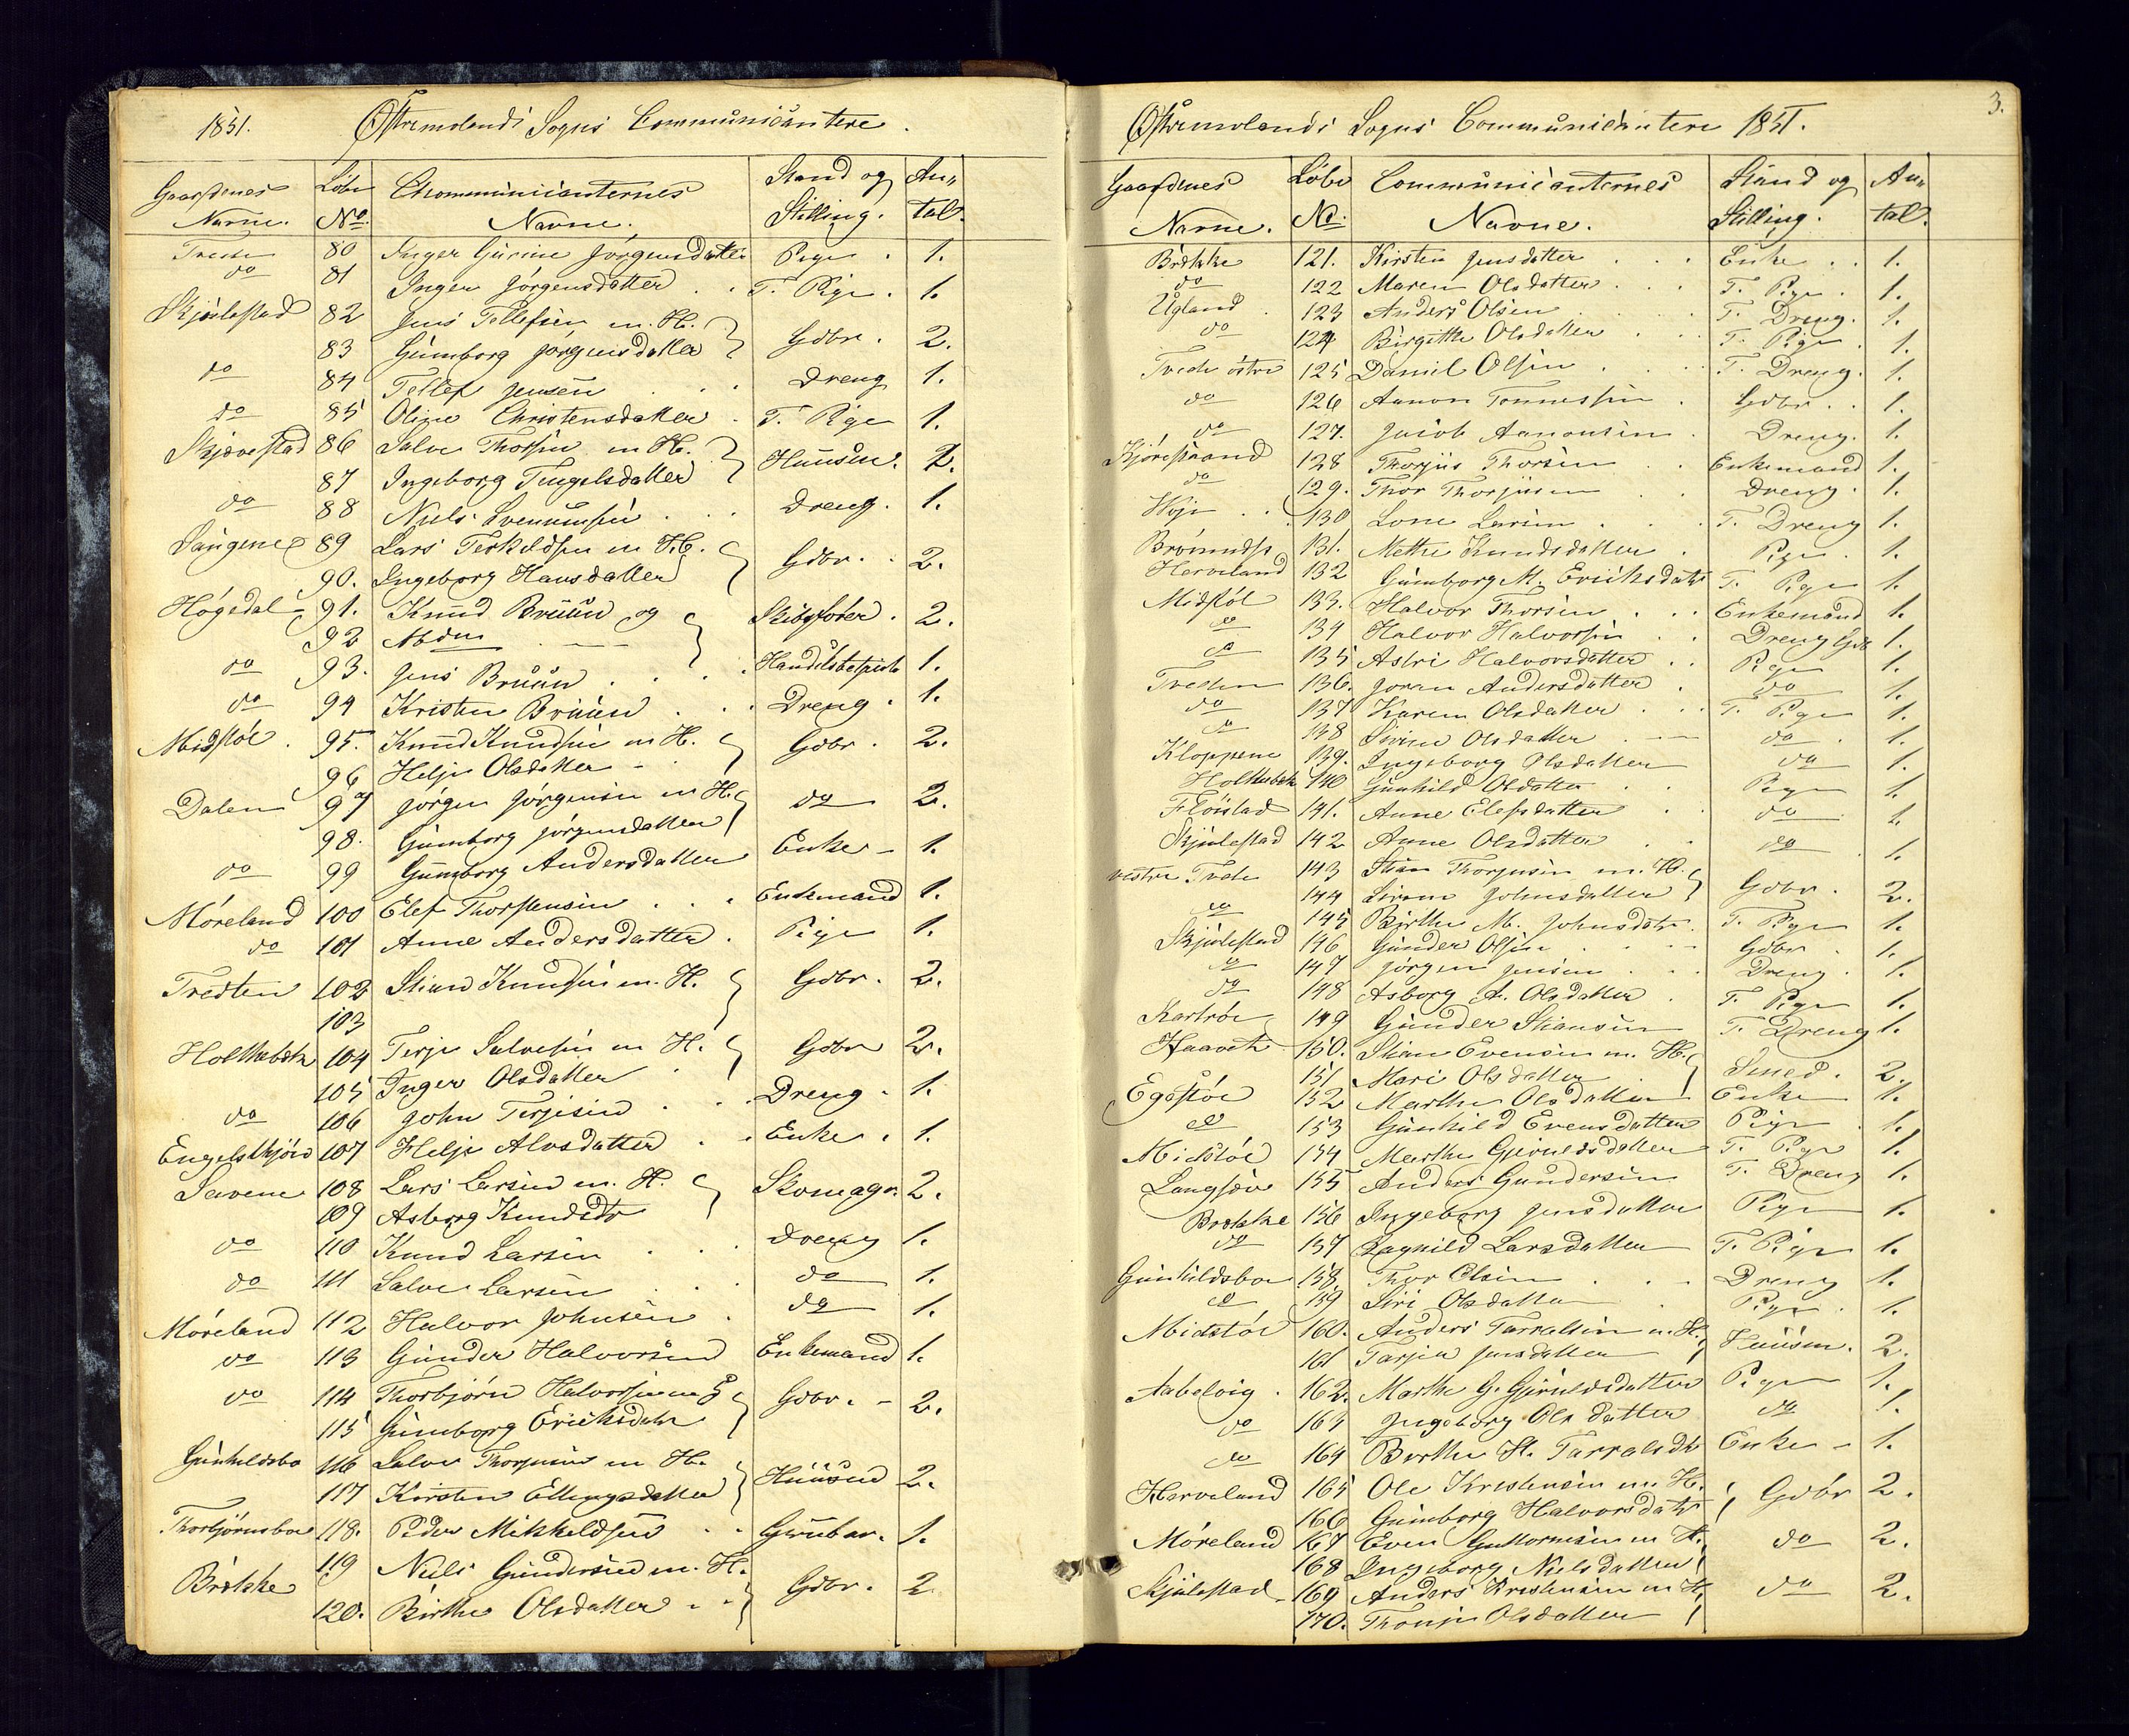 1851. Østremolands Sogns Communicantere.
Gaardenes Løbe Communicanternes Stand og An„
Navne. No. Navne. Stilling. tal.
Treden 80 Inger Gurine Jørgensdatter Pige . 1.
do 81 Inger Jørgensdatter . . T. Pige . 1.
Skjulestad 82 Jens Tellefsen m. H.
83 Gunborg Jørgensdatter Gdbr. 2.
do 84 Tellef Jensen . . Dreng 1.
do 85 Oline Christensdatter . T. Pige 1.
Skjævestad 86 Salve Thorsen m H.
87 Ingeborg Tengelsdatter Huusm. 2.
do 88 Niels Svenumsen . . Dreng . 1.
Songene 89 Lars Terkeldsen m H.
90. Ingeborg Hansdatter Gdbr. . 2.
Høgedal 91. Knud Bruun og Skibsfører . 2.
92 Mdm
do 93. Jens Bruun . . . Handelsbetjent 1.
do 94 Kristen Bruun . . Dreng . 1.
Midstøl . 95. Knud Knudsen m H. Gdbr . 2.
96 Helje Olsdatter
Dalen 97 Jørgen Jørgensen m H. do 2.
98. Gunborg Jørgensdatter
do 99 Gunborg Andersdatter Enke 1.
Møreland 100 Elef Thorstensen . . . Enkemand 1.
do 101 Anne Andersdatter . Pige 1.
Tredten 102 Stian Knudsen m. H. Gdbr. 2.
103
Holtebek 104 Terje Salvesen m H. Gdbr 2.
105 Inger Olsdatter
do 106 John Terjesen . . . Dreng . 1.
Engelskjøn 107 Helje Alvsdatter . . Enke . 1.
Savene 108 Lars Larsen m. H. Skomager 2.
109 Asborg Knudsdtr
do 110 Knud Larsen . . . Dreng 1.
do 111 Salve Larsen . . do 1.
Møreland 112 Halvor Johnsen . do 1.
do 113 Gunder Halvorsen Enkemand 1.
do 114 Thorbjørn Halvorsen m H Gdbr. 2.
115 Gunborg Eriksdatr
Gunhildsbo 116 Salve Thorsen m H.
117 Kirsten Ellingsdatter Huusm 2.
Thorbjørnsboe 118. Peder Mikkeldsen . . Grubar. 1.
119 Niels Gundersen m. H.
Brække 120. Birthe Olsdatter Gdbr. 2

3.
Østremolands Sogns Communicantere 1851.
Gaardenes Løbe Communicanternes Stand og An„
Navne. No. Navne. Stilling. tal.
Brække 121. Kirsten Jensdatter . . . Enke . . 1.
do 122 Maren Olsdatter . . . T. Pige . 1.
Ugland . 123 Anders Olsen . . T. Dreng. 1.
do 124 Birgithe Olsdatter . . T. Pige . 1.
Trede østre 125 Daniel Olsen . . . T. Dreng. 1.
do 126 Aanon Tønnessen . Gdbr . . 1.
do 127. Jacob Aanonsen . Dreng. 1.
Kjørestrand 128 Thorjus Thorsen . . Enkemand 1.
do 129. Thor Thorjusen . . Dreng . 1.
Høje . . 130 Lone Larsen . . . T. Dreng 1.
131. Mette Knudsdatter . Pige . 1.
Herveland 132 Gunborg M. Eriksdatr T. Pige 1.
Midstøl 133. Halvor Thorsen . . . Enkemand 1.
do 134 Halvor Halvorsen . . Dreng Gdb 1.
do 135 Astri Halvorsdatter . . Pige 1.
Treden 136. Joren Andersdatter . do 1.
do 137 Karen Olsdatter . . . T. Pige 1.
do 138 Olsdatter . do . 1.
Kloppene 139. Ingeborg Olsdatter do 1.
Holtebek 140 Gunhild Olsdatter . . Pige 1.
Fløistad 141. Anne Elefsdatter . . do 1.
Skjulestad 142 Anne Olsdatter . . do . 1.
vestre Trede 143 Stian Thorjusen m. H.
do 144 Johnsdatter Gdbr . 2.
145 Birthe M. Johnsdatr. T. Pige 1.
Skjulestad 146 Gunder Olsen . . . Gdbr . 1.
do 147 Jørgen Jensen . . . Dreng . 1.
do 148 Asborg A. Olsdatter . T. Pige 1.
149 Gunder Stiansen T. Dreng 1.
150. Stian Evensen m. H.
151 Mari Olsdatter . Smed . 2.
Egsstøl 152 Marthe Olsdatter Enke 1.
do 153 Gunhild Evensdatter Pige . 1.
Midstøl 154 Marthe Gjeruldsdatter T. Pige 1.
Langsæv 155 Anders Gundersen T. Dreng 1.
Brække 156 Ingeborg Jensdatter Pige 1.
do 157 Ragnild Larsdatter T. Pige 1.
Gunhildsboe 158. Thor Olsen . . . Dreng 1.
do 159 Siri Olsdatter . Pige . 1.
Midstøl 160. Anders Tarraldsen m. H.
161 Tarjer Jensdatter Huusm. 2.
Aabelvig . 162. Marthe G. Gjeruldsdatter Pige 1.
do 163 Ingeborg Olsdatter do 1.
do 164 Berthe H. Tarraldsdtr Enke 1.
Herveland 165 Ole Kristensen m. H.
166 Gunborg Halvorsdatr Gdbr 2.
Møreland 167 Even Guttormsen m H. do 2.
168 Ingeborg Nielsdatter
Skjulestad 169 Anders Kristensen m H. do 2.
170. Thonje Olsdatter